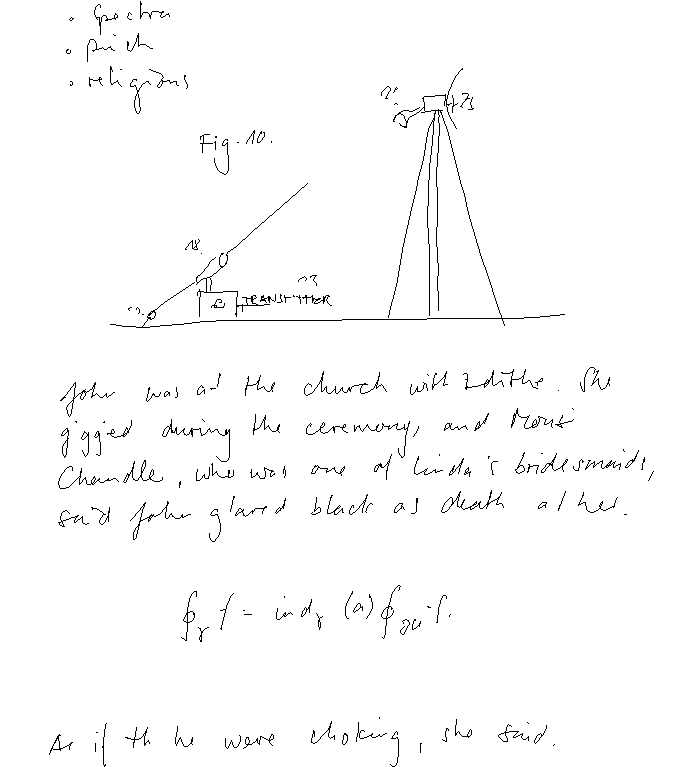 • spectra
• pinch
• religions
Fig. 10.
18.
13
TRANSMITTER
John was at the church with Edithe. She
giggled during the ceremony, and
Chandle, who was one of Linda's bridesmaids,
said John glared black as death at her.
∮γ f = indγ (a) ∮∂u f.
As if he were choking, she said.